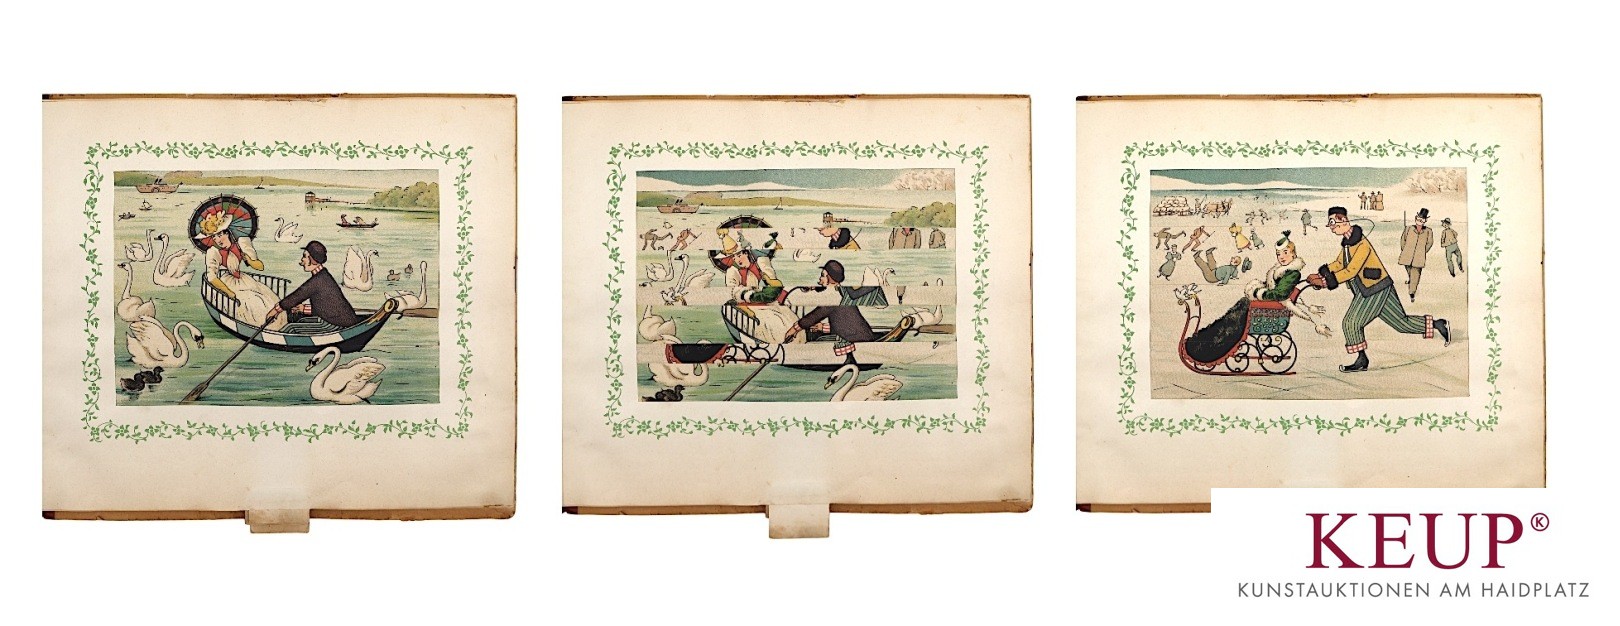 KEUP®
KUNSTAUKTIONEN AM HAIDPLATZ